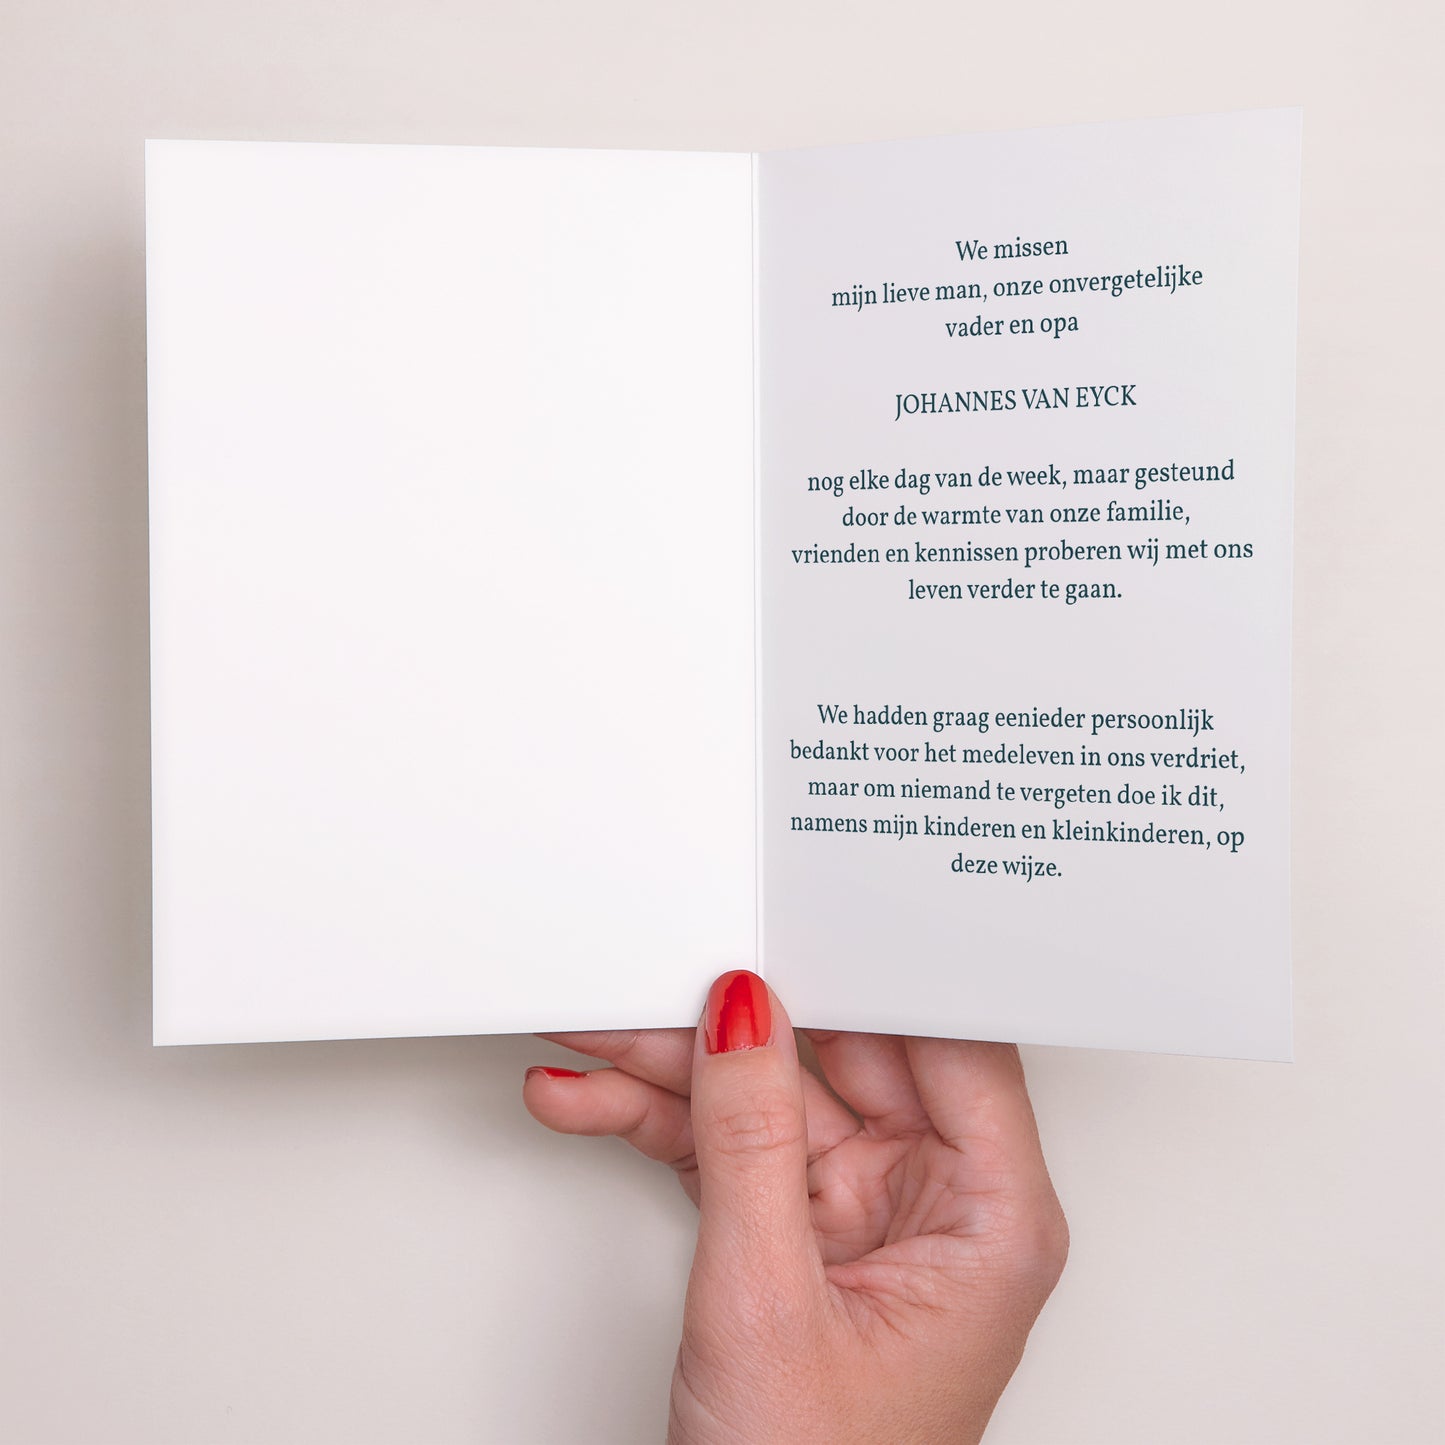 We missen
mijn lieve man, onze onvergetelijke
vader en opa
JOHANNES VAN EYCK
nog elke dag van de week, maar gesteund
door de warmte van onze familie,
vrienden en kennissen proberen wij met ons
leven verder te gaan.
We hadden graag eenieder persoonlijk
bedankt voor het medeleven in ons verdriet,
maar om niemand te vergeten doe ik dit,
namens mijn kinderen en kleinkinderen, op
deze wijze.